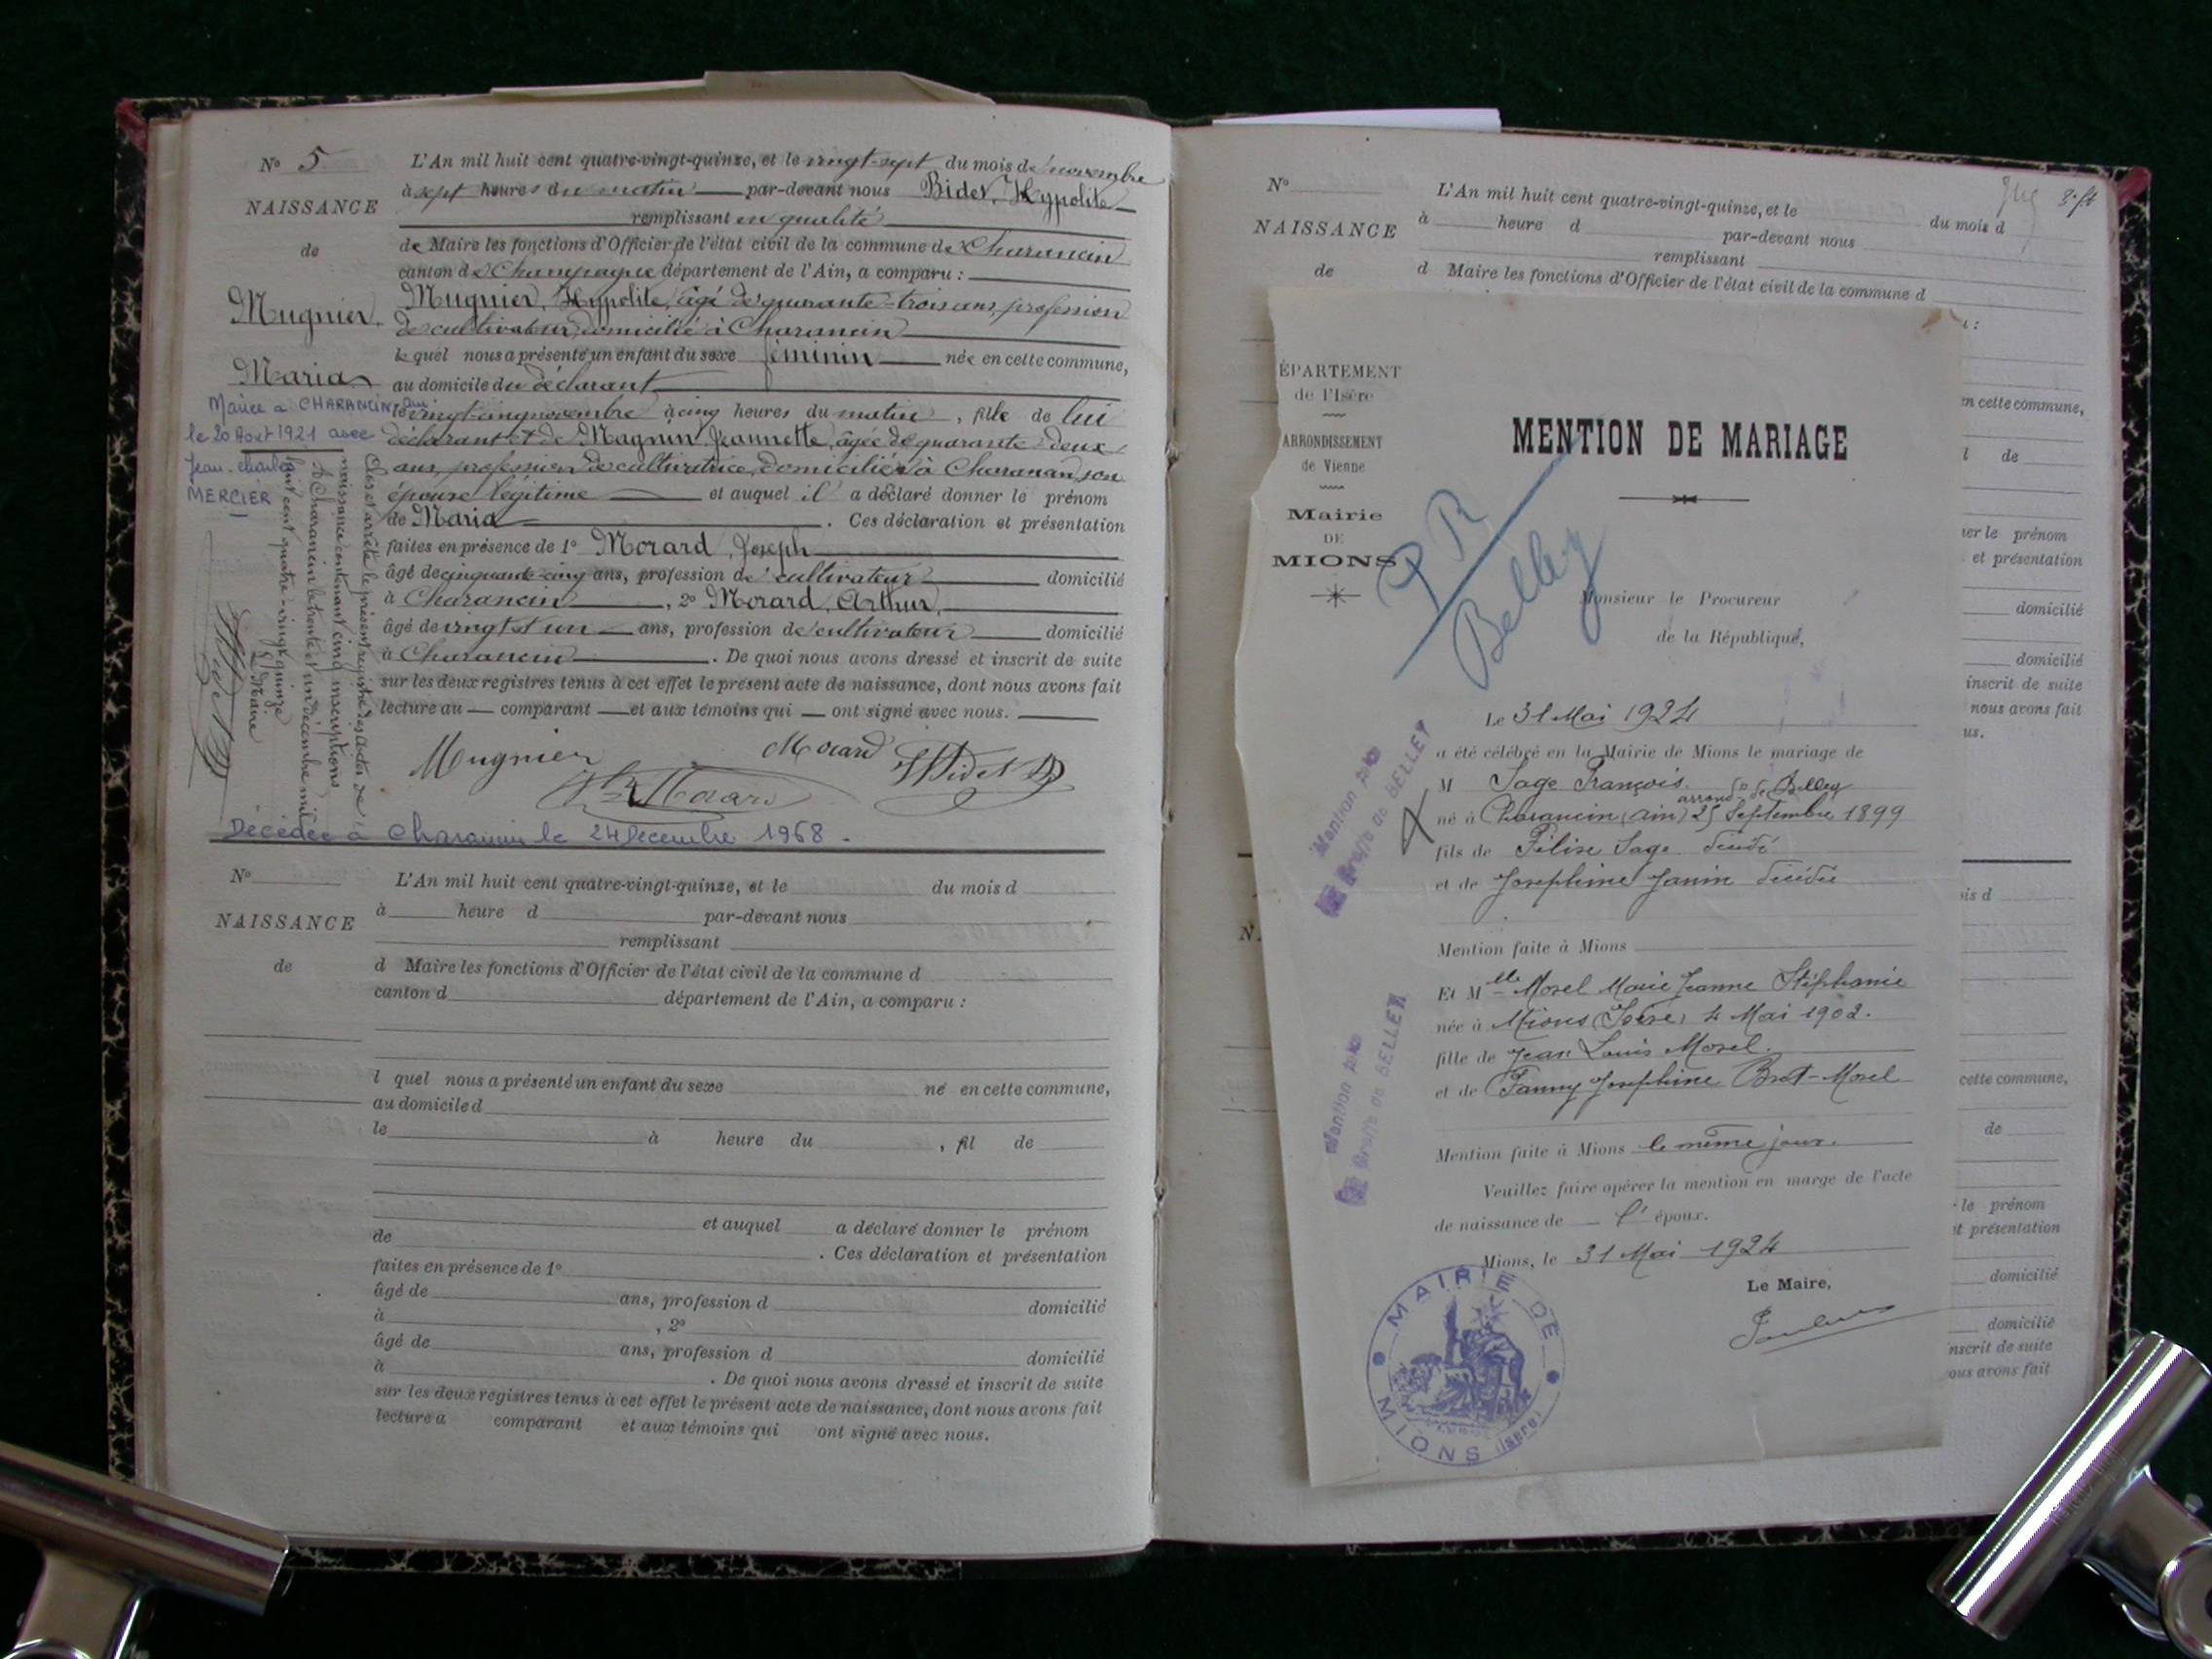 N° 5
NAISSANCE
de
Mugnier,
Maria
Mariée à CHARANCIN
le 20 Aout 1921 avec
Jean-Charles
MERCIER
L'An mil huit cent quatre-vingt-quinze, et le vingt-sept du mois de novembre
à sept heures du matin par-devant nous Bidet, Hyppolite
remplissant en qualité
de Maire les fonctions d'Officier de l'état civil de la commune de Charancin
canton de Champagne département de l'Ain, a comparu :
Mugnier, Hyppolite, âgé de quarante-trois ans, profession
de cultivateur, domicilié à Charancin
lequel nous a présenté un enfant du sexe féminin née en cette commune,
au domicile du déclarant
le vingt-cinq novembre à cinq heures du matin, fille de lui
déclarant et de Magnin Jeannette, âgée de quarante-deux
ans, profession de cultivatrice, domiciliée à Charancin, son
épouse légitime et auquel il a déclaré donner le prénom
de Maria . Ces déclaration et présentation
faites en présence de 1° Morard, Joseph
âgé de cinquante-cinq ans, profession de cultivateur domicilié
à Charancin , 2° Morard, Arthur,
âgé de vingt et un ans, profession de cultivateur domicilié
à Charancin . De quoi nous avons dressé et inscrit de suite
sur les deux registres tenus à cet effet le présent acte de naissance, dont nous avons fait
lecture au — comparant — et aux témoins qui — ont signé avec nous.
Clos et arrêté le présent registre des actes de
naissance contenant cinq inscriptions
à Charancin le trente et un décembre mil
huit cent quatre-vingt quinze
Le Maire
Mugnier Morard HBidet
Morard
Décédée à Charancin le 24 Decembre 1968.
N°
NAISSANCE
de
L'An mil huit cent quatre-vingt-quinze, et le du mois d
à heure d par-devant nous
remplissant
d Maire les fonctions d'Officier de l'état civil de la commune d
canton d département de l'Ain, a comparu :
l quel nous a présenté un enfant du sexe né en cette commune,
au domicile d
le à heure du , fil de
et auquel a déclaré donner le prénom
de . Ces déclaration et présentation
faites en présence de 1°
âgé de ans, profession d domicilié
à , 2°
âgé de ans, profession d domicilié
à . De quoi nous avons dressé et inscrit de suite
sur les deux registres tenus à cet effet le présent acte de naissance, dont nous avons fait
lecture a comparant et aux témoins qui ont signé avec nous.
N°
NAISSANCE
de
L'An mil huit cent quatre-vingt-quinze, et le du mois d
à heure d par-devant nous
remplissant
d Maire les fonctions d'Officier de l'état civil de la commune d
ÉPARTEMENT
de l'Isère
ARRONDISSEMENT
de Vienne
Mairie
DE
MIONS
MENTION DE MARIAGE
PR
Belley
Monsieur le Procureur
de la République,
Le 31 Mai 1924
a été célébré en la Mairie de Mions le mariage de
M Sage François.
arrond<sup>t</sup> de Belley
né à Charancin (ain) 25 Septembre 1899
fils de Félise Sage décédé
et de Josephine Janin décédée
Mention faite à Mions
Et M<sup>elle</sup> Morel Marie Jeanne Stéphanie
née à Mions (Isère) 4 Mai 1902.
fille de Jean Louis Morel.
et de Fanny Josephine Brot-Morel
Mention faite à Mions le même jour.
Veuillez faire opérer la mention en marge de l'acte
de naissance de l'époux.
Mions, le 31 Mai 1924
Le Maire,
MAIRIE DE MIONS (Isère)
Greffe de BELLEY
Greffe de BELLEY
n cette commune,
l de
er le prénom
et présentation
domicilié
domicilié
inscrit de suite
nous avons fait
us.
is d
cette commune,
de
le prénom
t présentation
domicilié
domicilié
nscrit de suite
ous avons fait